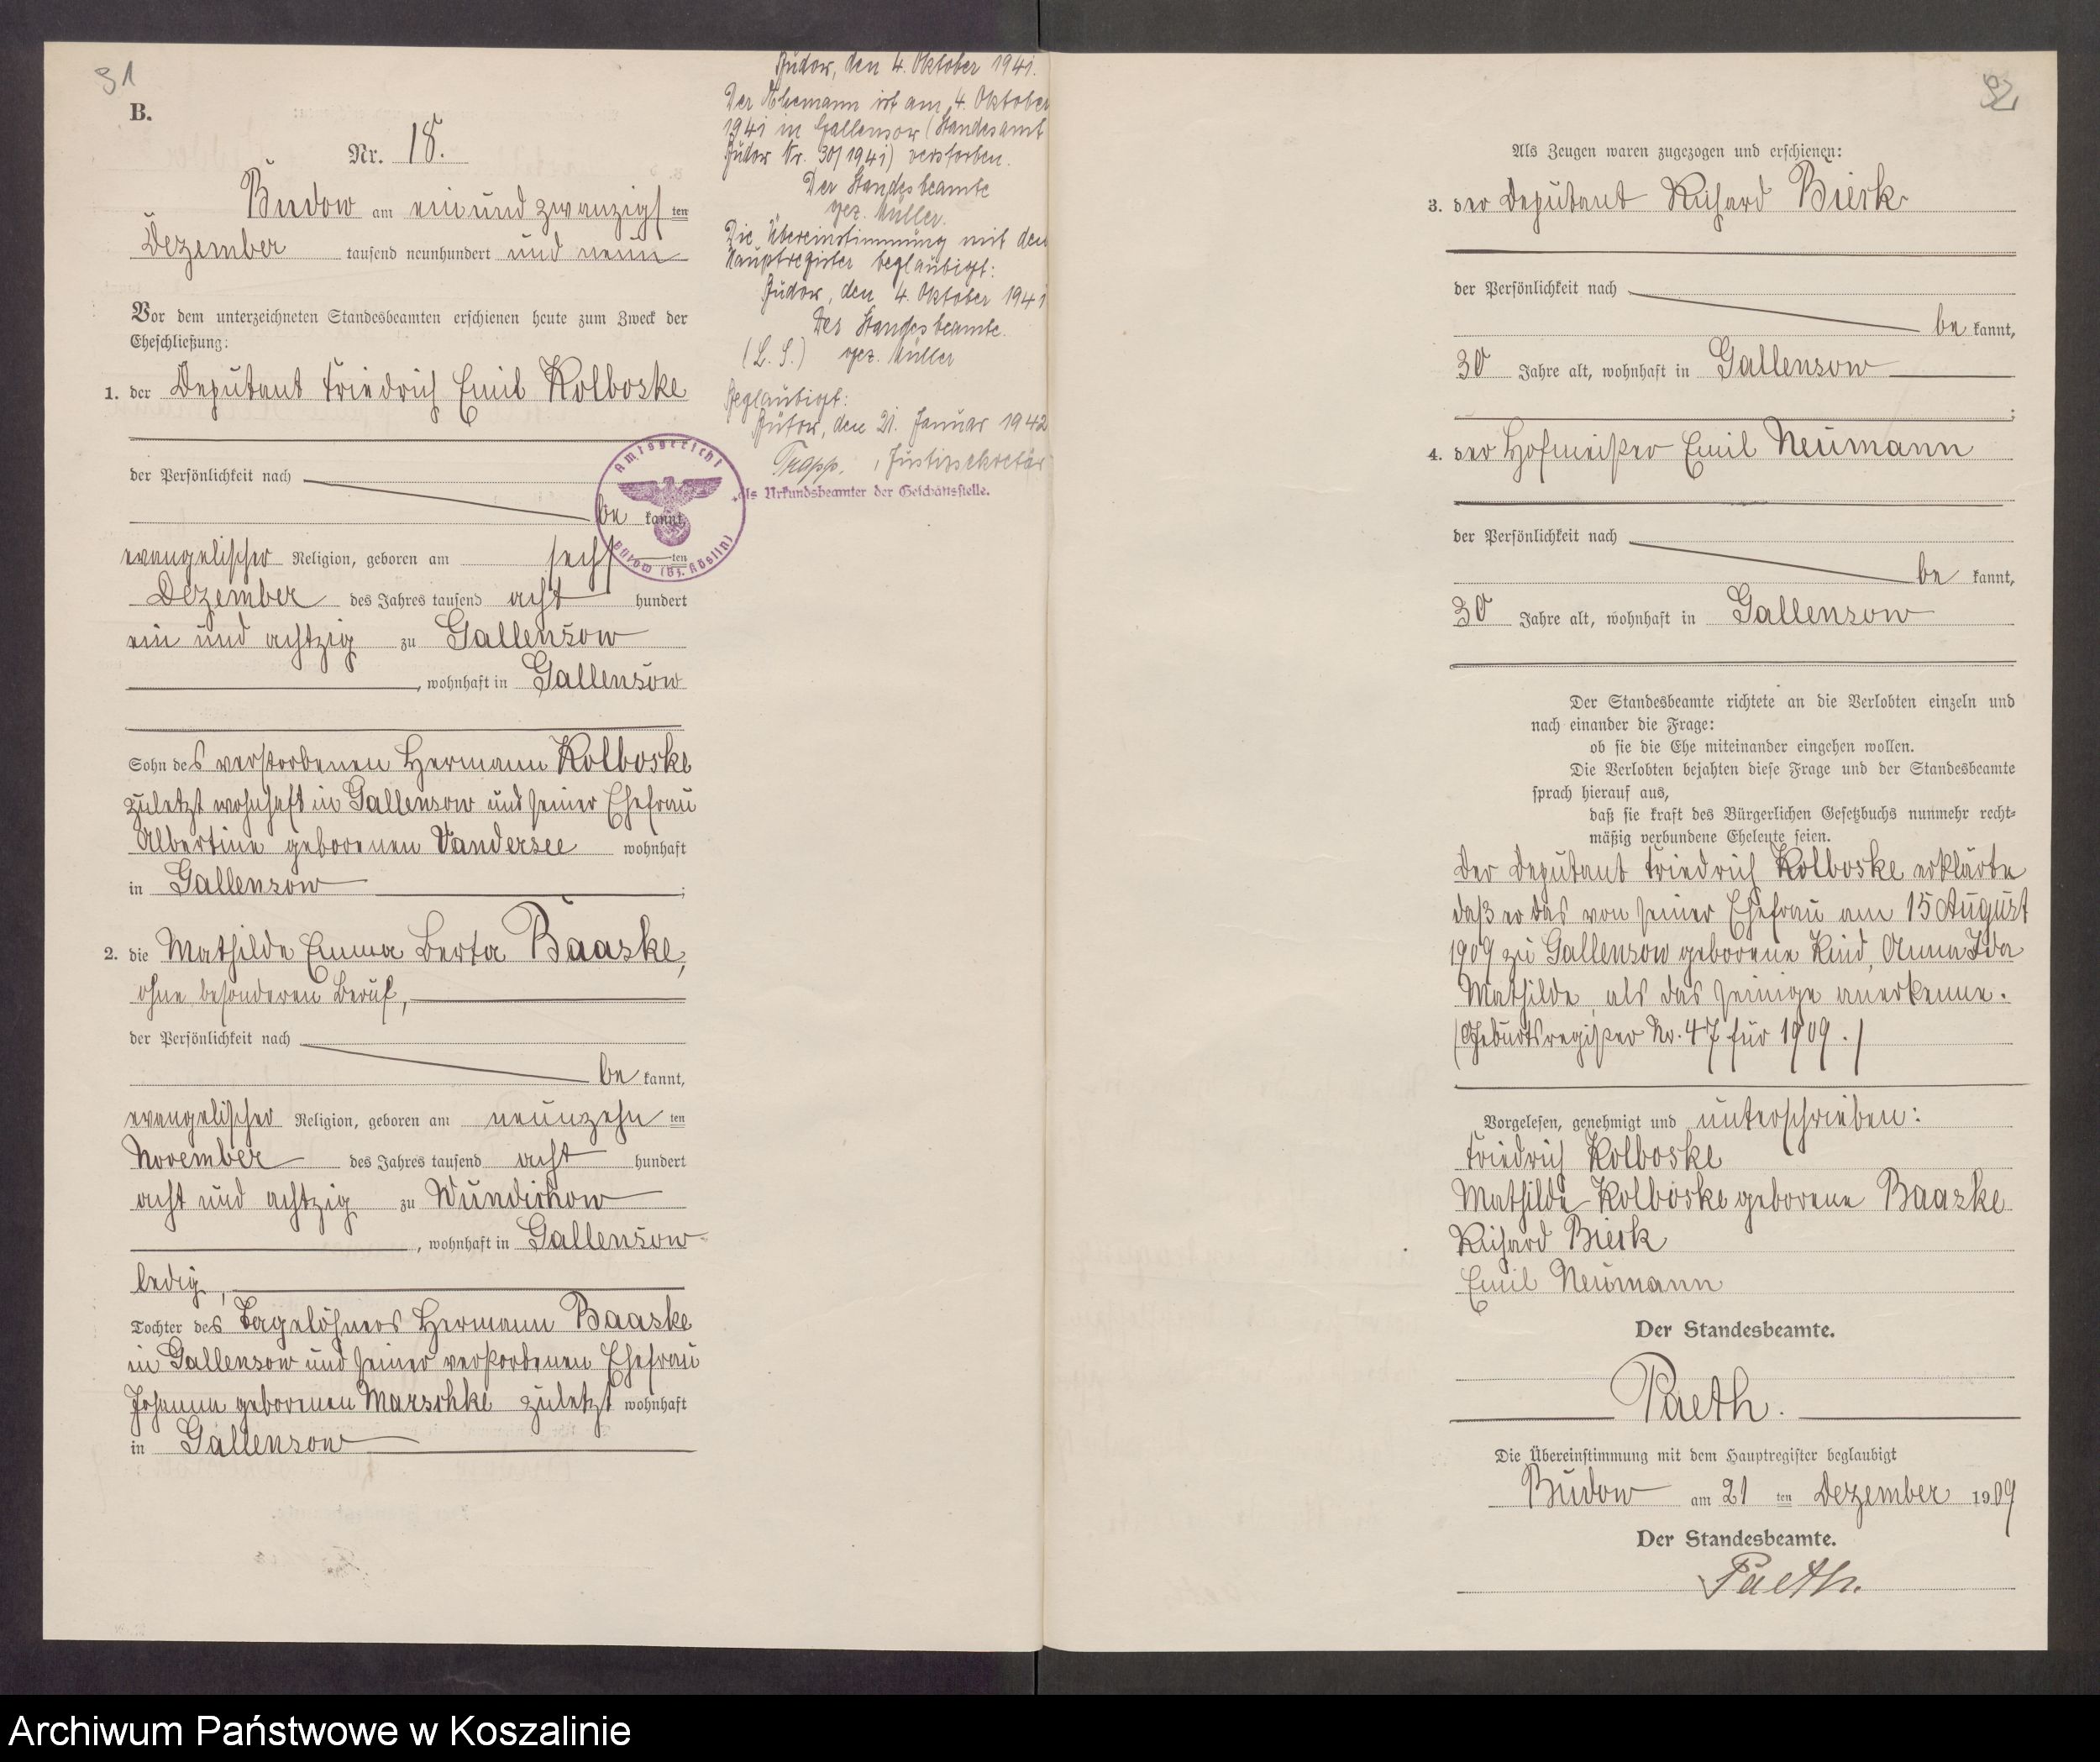 31
B.
Nr. 18.
Budow am ein und zwanzigsten
Dezember tausend neunhundert und neun
Vor dem unterzeichneten Standesbeamten erschienen heute zum Zweck der
Eheschließung:
1. der Deputant Friedrich Emil Kolboske
der Persönlichkeit nach
be kannt,
evangelischer Religion, geboren am sechsten
Dezember des Jahres tausend acht hundert
ein und achtzig zu Gallensow
, wohnhaft in Gallensow
Sohn des verstorbenen Hermann Kolboske
zuletzt wohnhaft in Gallensow und seiner Ehefrau
Albertine geborenen Vandersee wohnhaft
in Gallensow ;
2. die Mathilde Emma Berta Baaske,
ohne besonderen Beruf,
der Persönlichkeit nach
be kannt,
evangelischer Religion, geboren am neunzehn ten
November des Jahres tausend acht hundert
acht und achtzig zu Wundichow
, wohnhaft in Gallensow
ledig,
Tochter des Tagelöhners Hermann Baaske
in Gallensow und seiner verstorbenen Ehefrau
Johanna geborenen Marschke zuletzt wohnhaft
in Gallensow
Budow, den 4. Oktober 1941.
Der Ehemann ist am 4. Oktober
1941 in Gallensow (Standesamt
Budow Nr. 30/1941) verstorben.
Der Standesbeamte
gez. Müller.
Die Übereinstimmung mit dem
Hauptregister beglaubigt:
Budow, den 4. Oktober 1941
Der Standesbeamte.
(L. S.) gez. Müller
Beglaubigt:
Bütow, den 21. Januar 1942
Trapp, Justizsekretär
als Urkundsbeamter der Geschäftsstelle.
Amtsgericht
Bütow (Bz. Köslin)
32
Als Zeugen waren zugezogen und erschienen:
3. der Deputant Richard Bierk
der Persönlichkeit nach
be kannt,
30 Jahre alt, wohnhaft in Gallensow
;
4. der Hofmeister Emil Neumann
der Persönlichkeit nach
be kannt,
30 Jahre alt, wohnhaft in Gallensow
Der Standesbeamte richtete an die Verlobten einzeln und
nach einander die Frage:
ob sie die Ehe miteinander eingehen wollen.
Die Verlobten bejahten diese Frage und der Standesbeamte
sprach hierauf aus,
daß sie kraft des Bürgerlichen Gesetzbuchs nunmehr recht-
mäßig verbundene Eheleute seien.
Der Deputant Friedrich Kolboske erklärte
daß er das von seiner Ehefrau am 15 August
1909 zu Gallensow geborene Kind, Anna Ida
Mathilde, als das seinige anerkenne.
(Geburtsregister No. 47 für 1909.)
Vorgelesen, genehmigt und unterschrieben:
Friedrich Kolboske
Mathilde Kolboske geborene Baaske
Richard Bierk
Emil Neumann
Der Standesbeamte.
Paeth.
Die Übereinstimmung mit dem Hauptregister beglaubigt
Budow am 21 ten Dezember 1909
Der Standesbeamte.
Paeth.
Archiwum Państwowe w Koszalinie